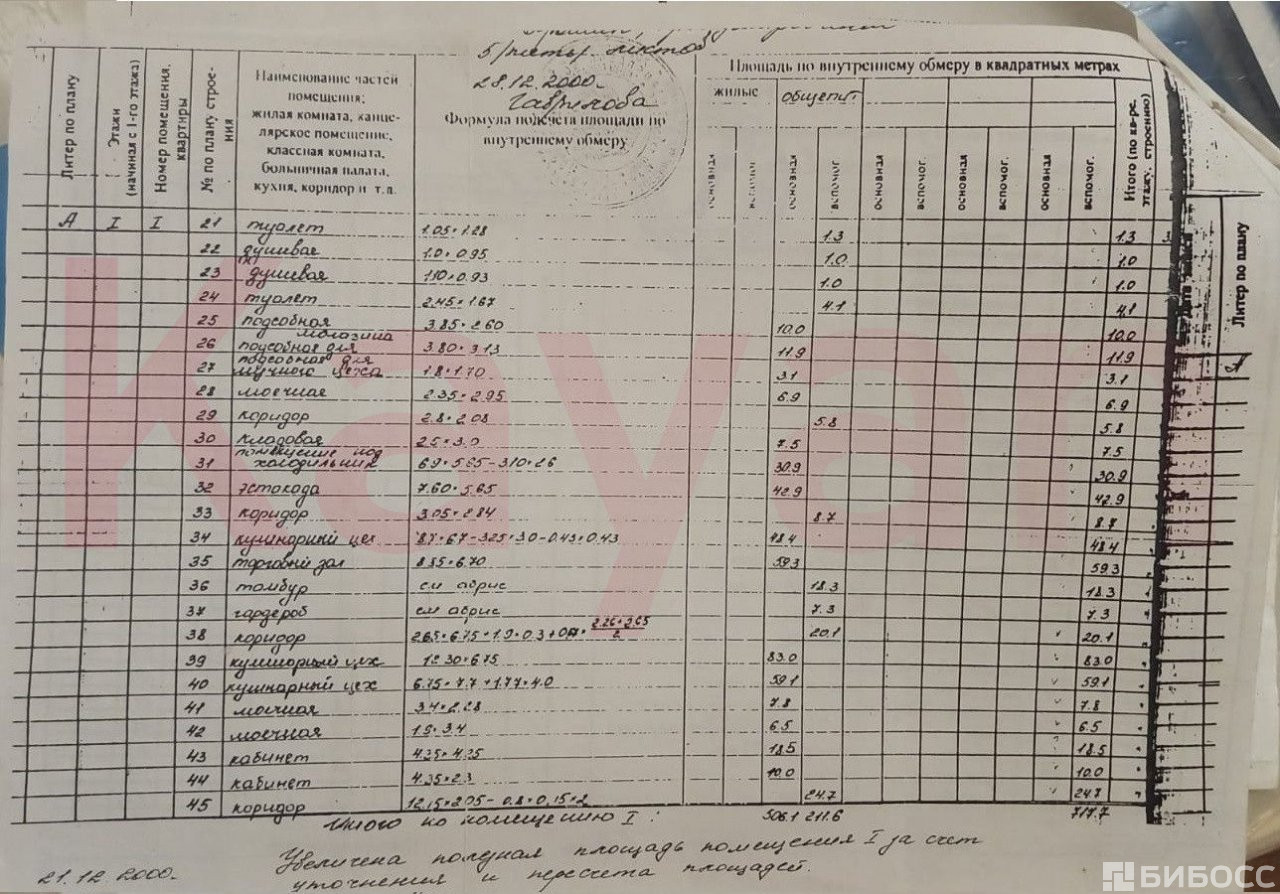 5/пять/ листов
28.12.2000г.
Гаврилова
Литер по плану
Этажи (начиная с 1-го этажа)
Номер помещения, квартиры
№ по плану строения
Наименование частей помещения: жилая комната, канцелярское помещение, классная комната, больничная палата, кухня, коридор и т.д.
Формула подсчета площади по внутреннему обмеру
Площадь по внутреннему обмеру в квадратных метрах
жилые
общепит
основная вспомог. основная вспомог. основная вспомог. основная вспомог. основная вспомог.
Итого (по кв-ре, этажу, строению)
Литер по плану
А I I 21 туалет 1.05*1.28 1.3 1.3
22 душевая 1.0*0.95 1.0 1.0
23 душевая 1.10*0.93 1.0 1.0
24 туалет 2.45*1.67 4.1 4.1
25 подсобная 3.85*2.60 10.0 10.0
26 подсобная для магазина 3.80*3.13 11.9 11.9
27 подсобная для мучного цеха 1.8*1.70 3.1 3.1
28 моечная 2.35*2.95 6.9 6.9
29 коридор 2.8*2.08 5.8 5.8
30 кладовая 2.5*3.0 7.5 7.5
31 помещение под холодильник 6.9*5.65-3.10*2.6 30.9 30.9
32 эстокада 7.60*5.65 42.9 42.9
33 коридор 3.05*2.84 8.7 8.7
34 кулинарный цех 8.7*6.7-3.25*3.0-0.43*0.43 48.4 48.4
35 торговый зал 8.85*6.70 59.3 59.3
36 тамбур см абрис 18.3 18.3
37 гардероб см абрис 7.3 7.3
38 коридор 2.65*6.75+1.9*0.3+ 2.26+2.65 2 20.1 20.1
39 кулинарный цех 12.30*6.75 83.0 83.0
40 кулинарный цех 6.75*7.7+1.77*4.0 59.1 59.1
41 моечная 3.4*2.28 7.8 7.8
42 моечная 1.5*3.4 6.5 6.5
43 кабинет 4.35*4.25 18.5 18.5
44 кабинет 4.35*2.3 10.0 10.0
45 коридор 12.15*2.05-0.8*0.15*2 24.7 24.7
Итого по помещению I: 506.1 211.6 717.7
21.12.2000г.
Увеличена полезная площадь помещения I за счет
уточнения и пересчета площадей.
Каян
БИБОСС